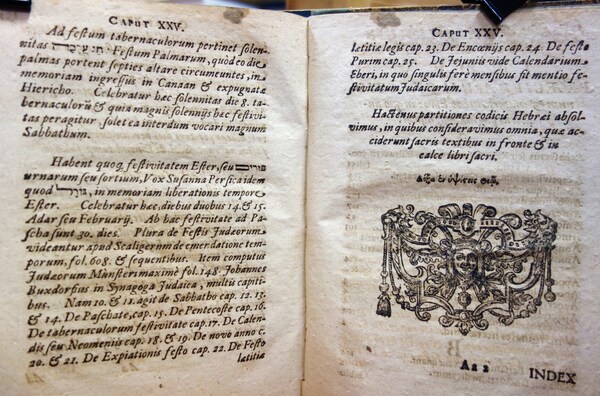 CAPUT XXV.
Ad festum tabernaculorum pertinet solen-
nitas חג ערבה Festum Palmarum, quòd eo die
palmas portent septies altare circumeuntes, in
memoriam ingressus in Canaan & expugnatæ
Hiericho. Celebratur hæc solennitas die 8. ta-
bernaculorũ & quia magnis solennijs hæc festivi-
tas peragitur, solet ea interdum vocari magnum
Sabbathum.
Habent quoq; festivitatem Ester, seu פורים
urnarum seu sortium, Vox Susanna Persica idem
quod גורל, in memoriam liberationis tempore
Ester. Celebratur hæc, diebus duobus 14. & 15.
Adar seu Februarij. Ab hac festivitate ad Pa-
scha sunt 30. dies. Plura de Festis Judæorum
videantur apud Scaligerum de emendatione tem-
porum, fol. 608. & sequentibus. Item computus
Judæorum Munsteri maximè fol. 148. Johannes
Buxdorfius in Synagoga Judaica, multis capiti-
bus. Nam 10. & 11. agit de Sabbatho cap. 12. 13.
& 14. De Paschate, cap. 15. De Pentecoste cap. 16.
De tabernaculorum festivitate cap. 17. De Calen-
dis seu Neomeniis cap. 18. & 19. De novo anno c.
20. & 21. De Expiationis festo cap. 22. De Festo
lætitiæ
CAPUT XXV.
lætitiæ legis cap. 23. De Encœnijs cap. 24. De festo
Purim cap. 25. De Jejuniis vide Calendarium
Eberi, in quo singulis ferè mensibus fit mentio fe-
stivitatum Judaicarum.
Hactenus partitiones codicis Hebræi absol-
vimus, in quibus consideravimus omnia, quæ ac-
ciderunt sacris textibus in fronte & in
calce libri sacri.
Δόξα ἐν ὑψίστοις Θεῷ.
Aa 2
INDEX